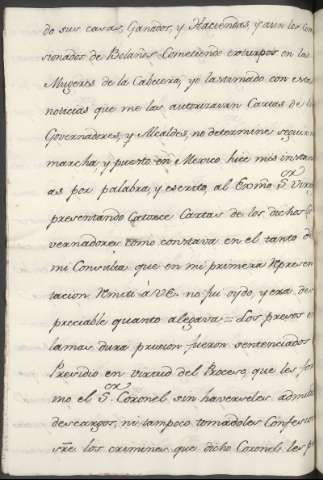 do sus casas, Ganados, y Haciendas, y aun los
sionados de Bolaños Cometiendo extrupos en las
Mugeres de la Cabecera, yo lastimado con esta
noticias que me las autorizavan Cartas de
Governadores, y Alcaldes, no determine seguir
marcha, y puesto en Mexico hice mis instan
as por palabra, y escrito, al Exmo Sor Virr
presentando Catorce Cartas de los dichos
vernadores como constava en el tanto de
mi Consulta que en mi primera Represen
tacion Remiti á VE. no fui oydo, y era des
preciable quanto alegava = Los presos en
la mas dura pricion fueron sentenciados
Presidio en virtud del Proceso, que les for
mo el Sor Coronel sin haverseles admitido
descargos, ni tampoco tomadoles Confecio
sre los crimines que dicho Coronel les